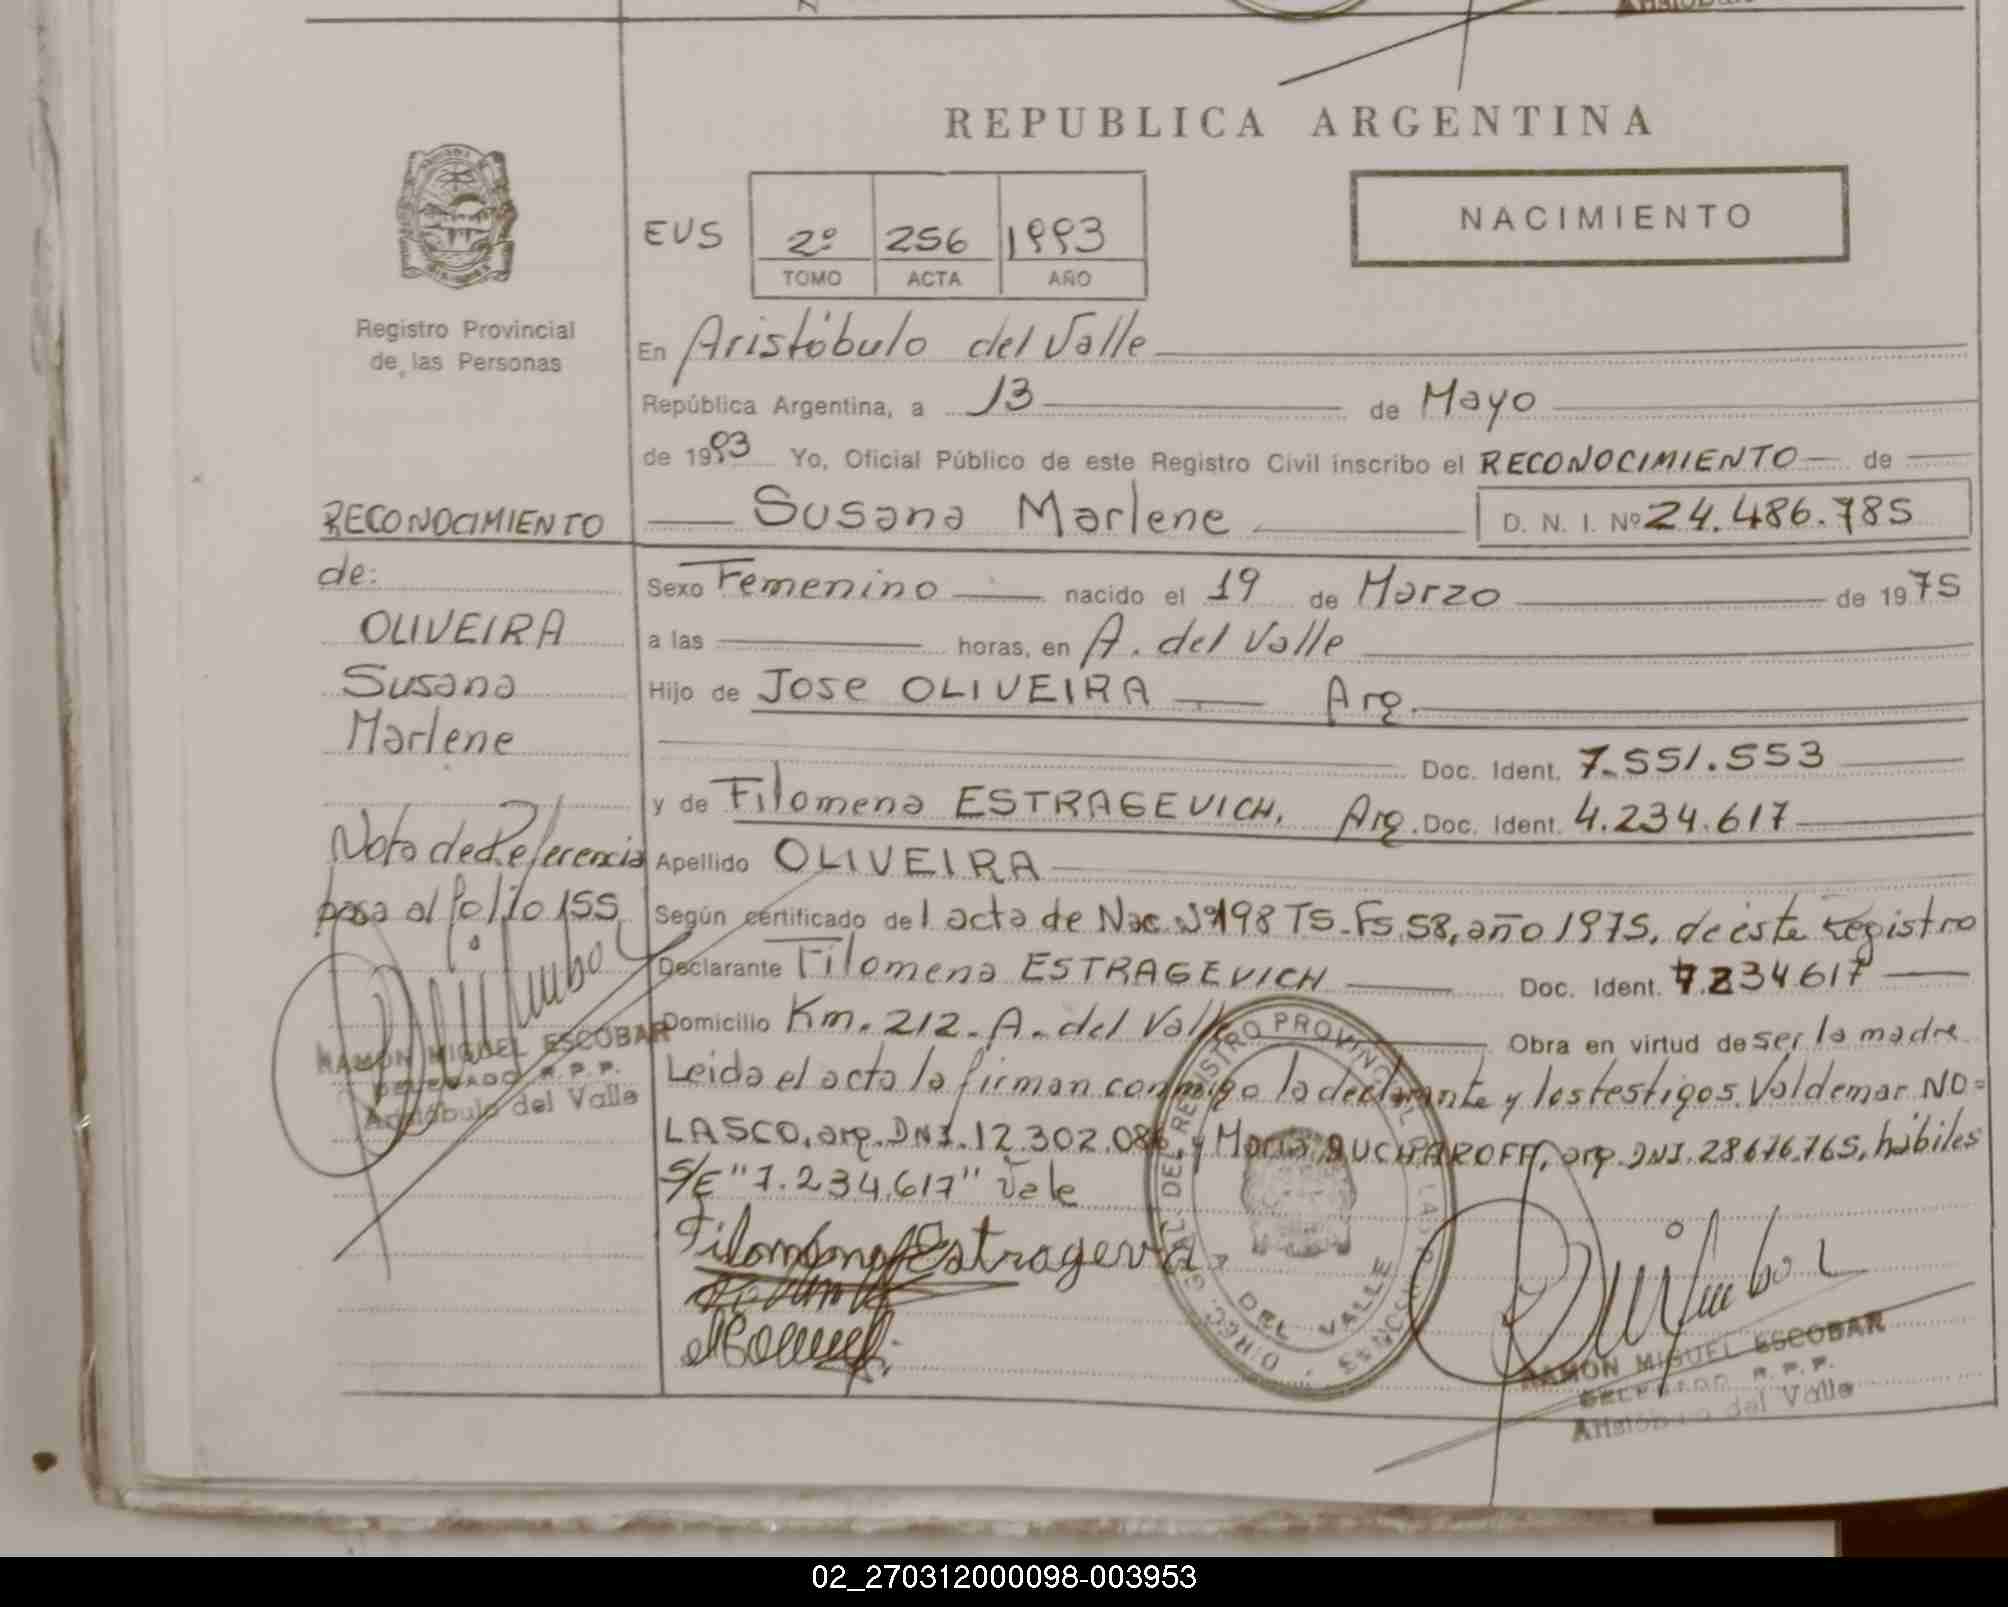 REPUBLICA ARGENTINA
NACIMIENTO
EUS 2º 256 1993
TOMO ACTA AÑO
Registro Provincial
de las Personas
En Aristóbulo del Valle
República Argentina, a 13 de Mayo
de 1993 Yo, Oficial Público de este Registro Civil inscribo el RECONOCIMIENTO de
Susana Marlene D. N. I. Nº 24.486.785
RECONOCIMIENTO
de:
OLIVEIRA
Susana
Marlene
Sexo Femenino nacido el 19 de Marzo de 1975
a las horas, en A. del Valle
Hijo de Jose OLIVEIRA Arg.
Doc. Ident. 7.551.553
y de Filomena ESTRAGEVICH, Arg. Doc. Ident. 4.234.617
Apellido OLIVEIRA
Nota de Referencia
pasa al folio 155
Según certificado del acta de Nac. Nº 198 T5-Fs 58, año 1975, de éste registro
Declarante Filomena ESTRAGEVICH Doc. Ident. 7.234.617
Domicilio Km. 212 - A. del Valle Obra en virtud de ser la madre
Leida el acta la firman conmigo la declarante y los testigos Valdemar NO=
LASCO, arg. DNI. 12.302.08 y Maria arg. DNI. 28676.765, hábiles
S/E "7.234.617" Vale
RAMON MIGUEL ESCOBAR
DELEGADO R. P. P.
Aristóbulo del Valle
Filomena Estragevi
DIREC. GRAL. DEL REGISTRO PROVINCIAL LAS PERSONAS
A DEL VALLE
RAMON MIGUEL ESCOBAR
DELEGADO R. P. P.
Aristóbulo del Valle
02_270312000098-003953